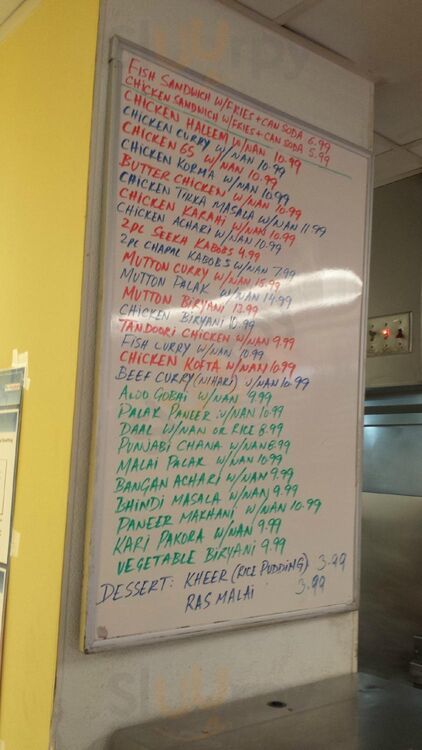 FISH SANDWICH W/FRIES + CAN SODA 6.99
CHICKEN SANDWICH W/FRIES + CAN SODA 5.99
CHICKEN HALEEM W/NAN 10.99
CHICKEN CURRY W/NAN 10.99
CHICKEN 65 W/NAN 10.99
CHICKEN KORMA W/NAN 10.99
BUTTER CHICKEN W/NAN 10.99
CHICKEN TIKKA MASALA W/NAN 11.99
CHICKEN KARAHI W/NAN 10.99
CHICKEN ACHARI W/NAN 10.99
2PC SEEKH KABOBS 4.99
2PC CHAPAL KABOBS W/NAN 7.99
MUTTON CURRY W/NAN 15.99
MUTTON PALAK W/NAN 14.99
MUTTON BIRYANI 13.99
CHICKEN BIRYANI 10.99
TANDOORI CHICKEN W/NAN 9.99
FISH CURRY W/NAN 10.99
CHICKEN KOFTA W/NAN 10.99
BEEF CURRY (NIHARI) W/NAN 10.99
ALOO GOBHI W/NAN 9.99
PALAK PANEER W/NAN 10.99
DAAL W/NAN OR RICE 8.99
PUNJABI CHANA W/NAN 8.99
MALAI PALAK W/NAN 10.99
BANGAN ACHARI W/NAN 9.99
BHINDI MASALA W/NAN 9.99
PANEER MAKHANI W/NAN 10.99
KARI PAKORA W/NAN 9.99
VEGETABLE BIRYANI 9.99
DESSERT: KHEER (RICE PUDDING) 3.99
RAS MALAI 3.99